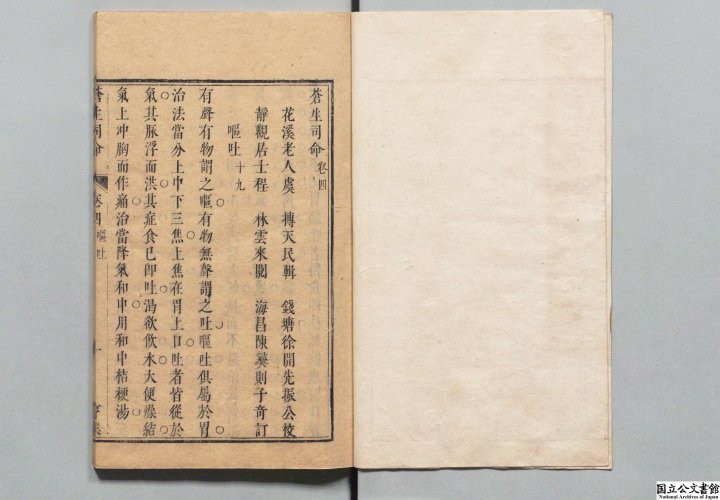 蒼生司命 卷四
花溪老人虞 摶天民輯 錢塘徐開先振公恔
靜觀居士程 林雲來閱 海昌陳藝則子奇訂
嘔吐 十九
有聲有物謂之嘔有物無聲謂之吐嘔吐俱屬於胃
治法當分上中下三焦上焦在胃上口吐者皆從於
氣其脉浮而洪其症食已卽吐渴欲飲水大便燥結
氣上冲胸而作痛治當降氣和中用和中桔梗湯
蒼生司命 卷四 嘔吐 一
国立公文書館
National Archives of Japan